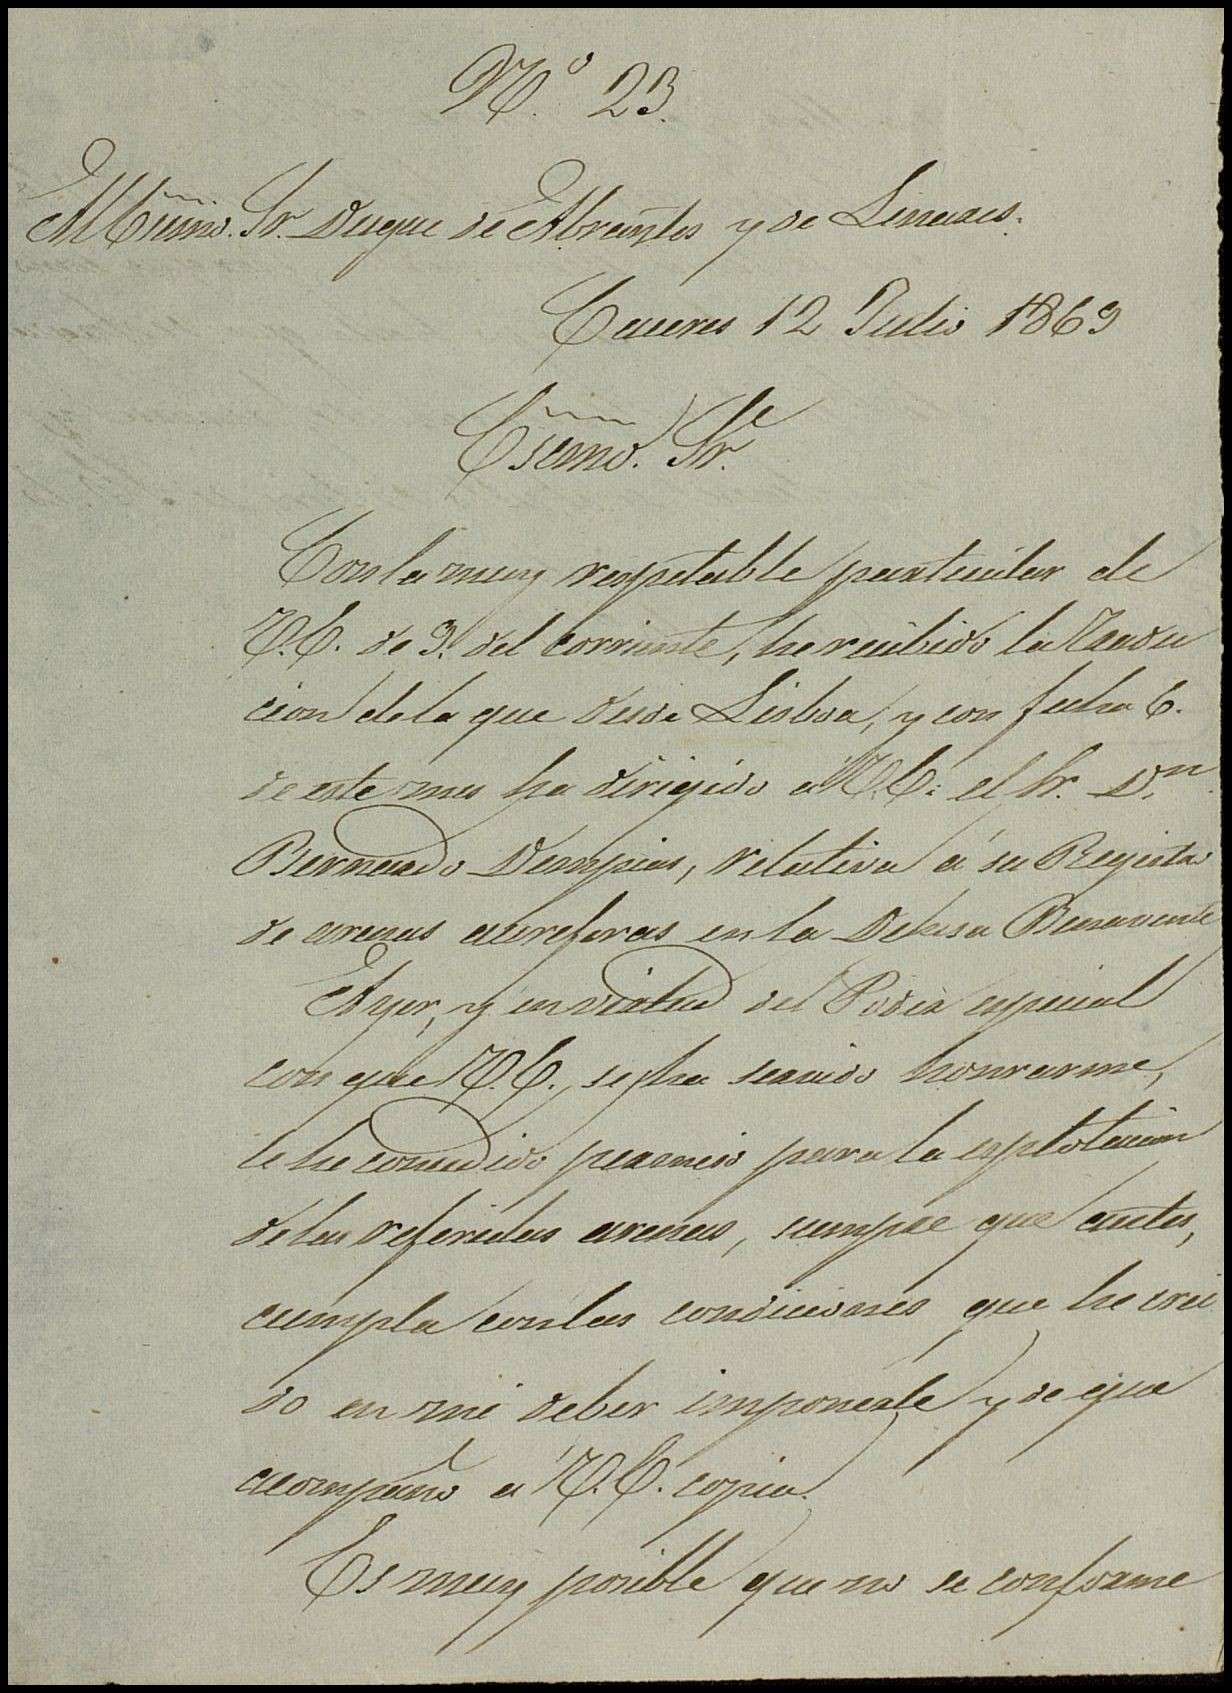 Nº 23.
Al Esc̃mo. Sr. Duque de Abrantes y de Linares.
Caceres 12 Julio 1869
Esc̃mo. Sr.
Con la muy respetable particular de
V.E. de 9. del corriente, he recibido la Tradu
cion de la que desde Lisboa, y con fecha 6.
de este mes ha dirigido a V.E. el Sr. Dn.
Bernardo Dempias, relativa á su Registro
de arenas aureferas en la Dehesa Benavente
Ayer, y en virtud del Poder especial
con que V.E. se ha servido honrarme,
le he concedido permiso para la esplotacion
de las referidas arenas, siempre que antes,
cumpla con las condiciones que he crei
do en mi deber imponerle y de que
acompaño a V.E. copia.
Es muy posible que no se conforme